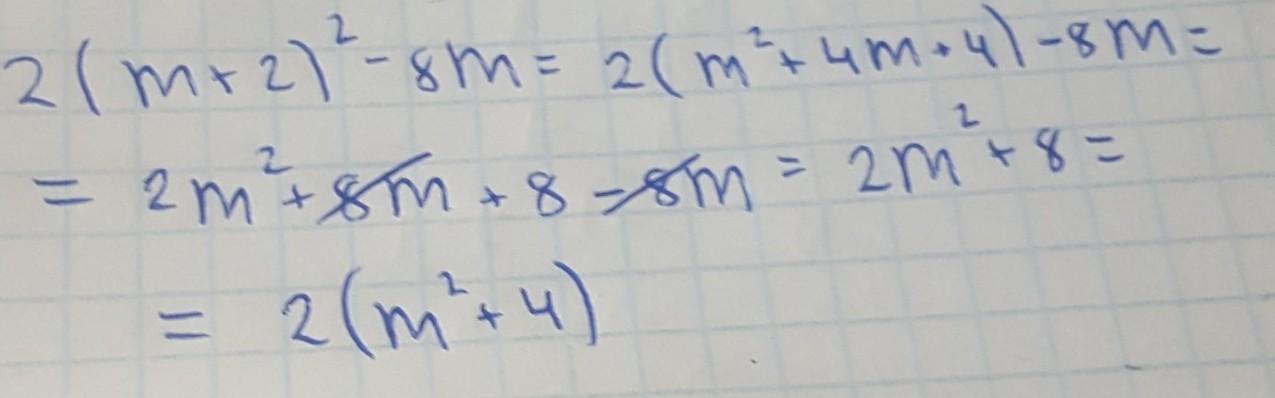 2(m+2)² - 8m = 2(m² + 4m + 4) - 8m =
= 2m² + 8m + 8 - 8m = 2m² + 8 =
= 2(m² + 4)